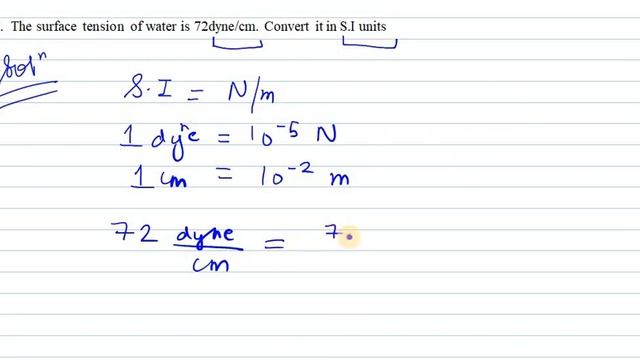 . The surface tension of water is 72dyne/cm. Convert it in S.I units
Solⁿ
S.I = N/m
1 dyne = 10⁻⁵ N
1 cm = 10⁻² m
72 dyne/cm = 7